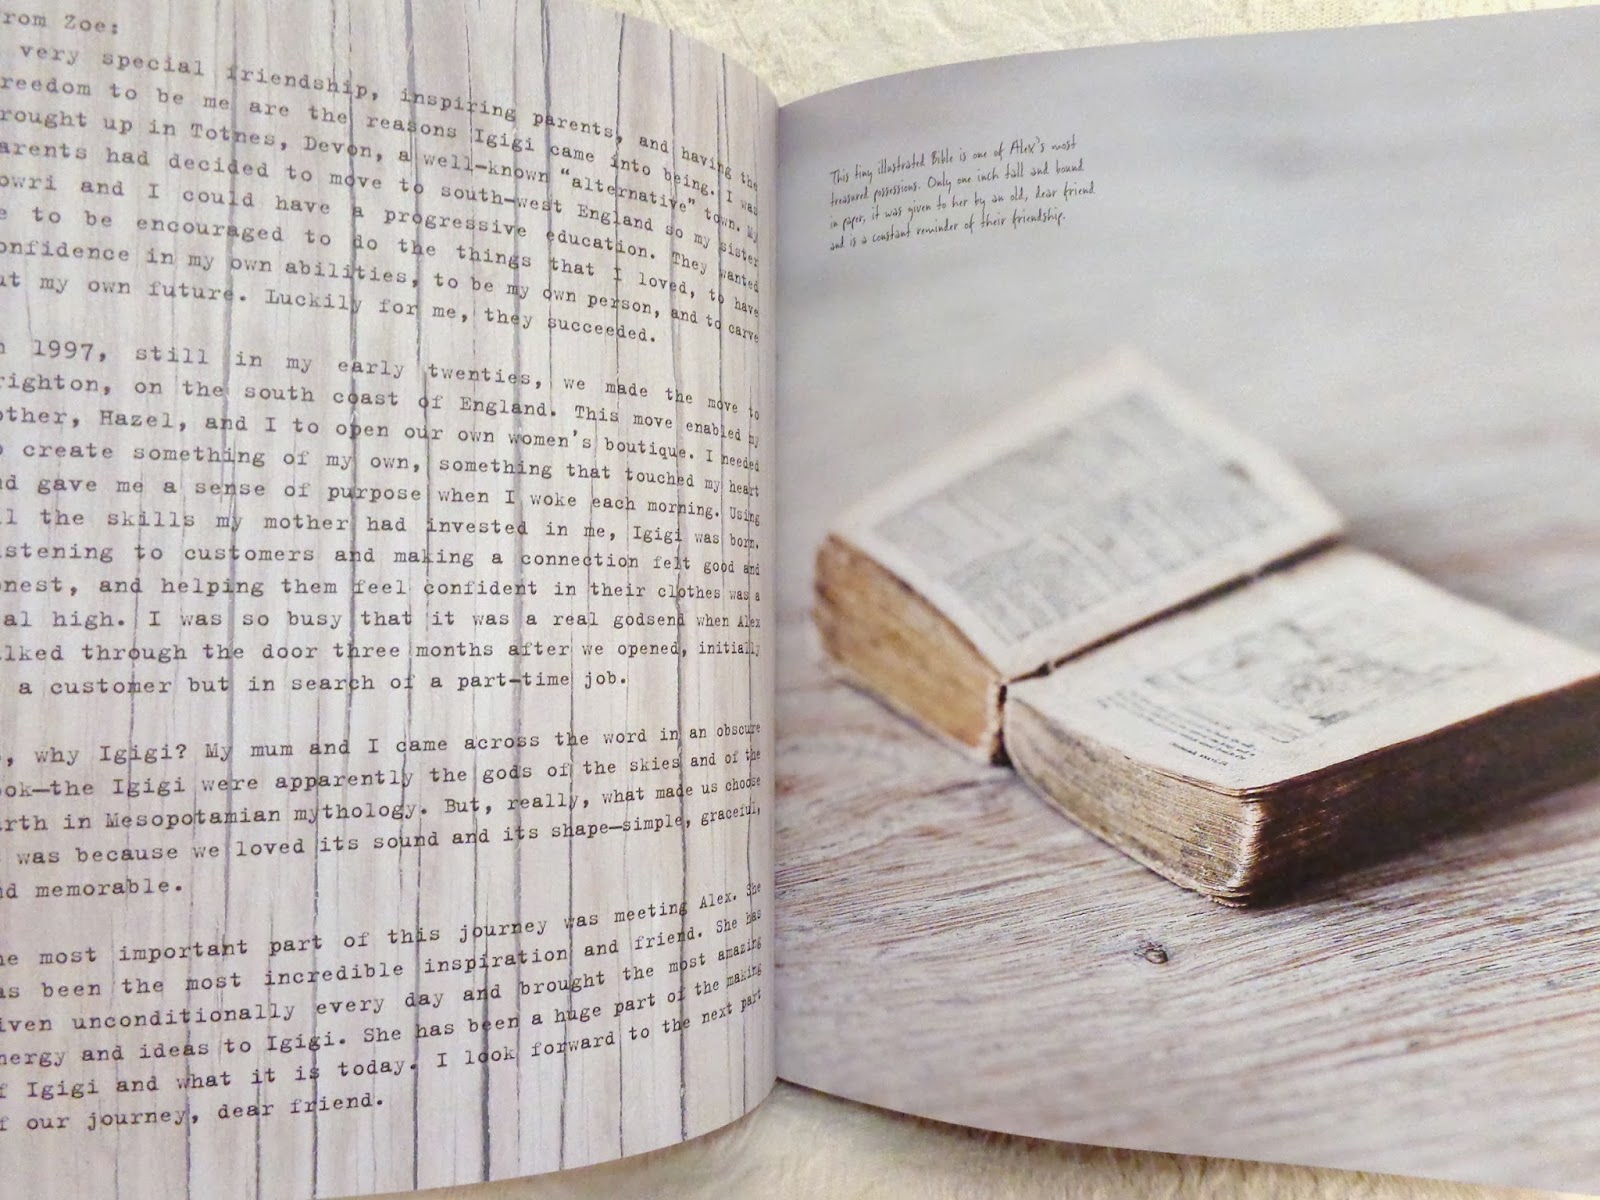 rom Zoe:
very special friendship, inspiring parents, and having the
reedom to be me are the reasons Igigi came into being. I was
rought up in Totnes, Devon, a well-known "alternative" town. My
arents had decided to move to south-west England so my sister
owri and I could have a progressive education. They wanted
e to be encouraged to do the things that I loved, to have
onfidence in my own abilities, to be my own person, and to carve
ut my own future. Luckily for me, they succeeded.
n 1997, still in my early twenties, we made the move to
righton, on the south coast of England. This move enabled my
other, Hazel, and I to open our own women's boutique. I needed
o create something of my own, something that touched my heart
nd gave me a sense of purpose when I woke each morning. Using
ll the skills my mother had invested in me, Igigi was born.
istening to customers and making a connection felt good and
onest, and helping them feel confident in their clothes was a
eal high. I was so busy that it was a real godsend when Alex
alked through the door three months after we opened, initially
a customer but in search of a part-time job.
, why Igigi? My mum and I came across the word in an obscure
ook—the Igigi were apparently the gods of the skies and of the
arth in Mesopotamian mythology. But, really, what made us choose
t was because we loved its sound and its shape—simple, graceful,
nd memorable.
he most important part of this journey was meeting Alex. She
as been the most incredible inspiration and friend. She has
iven unconditionally every day and brought the most amazing
nergy and ideas to Igigi. She has been a huge part of the making
f Igigi and what it is today. I look forward to the next part
f our journey, dear friend.
This tiny illustrated Bible is one of Alex's most
treasured possessions. Only one inch tall and bound
in paper, it was given to her by an old, dear friend
and is a constant reminder of their friendship.